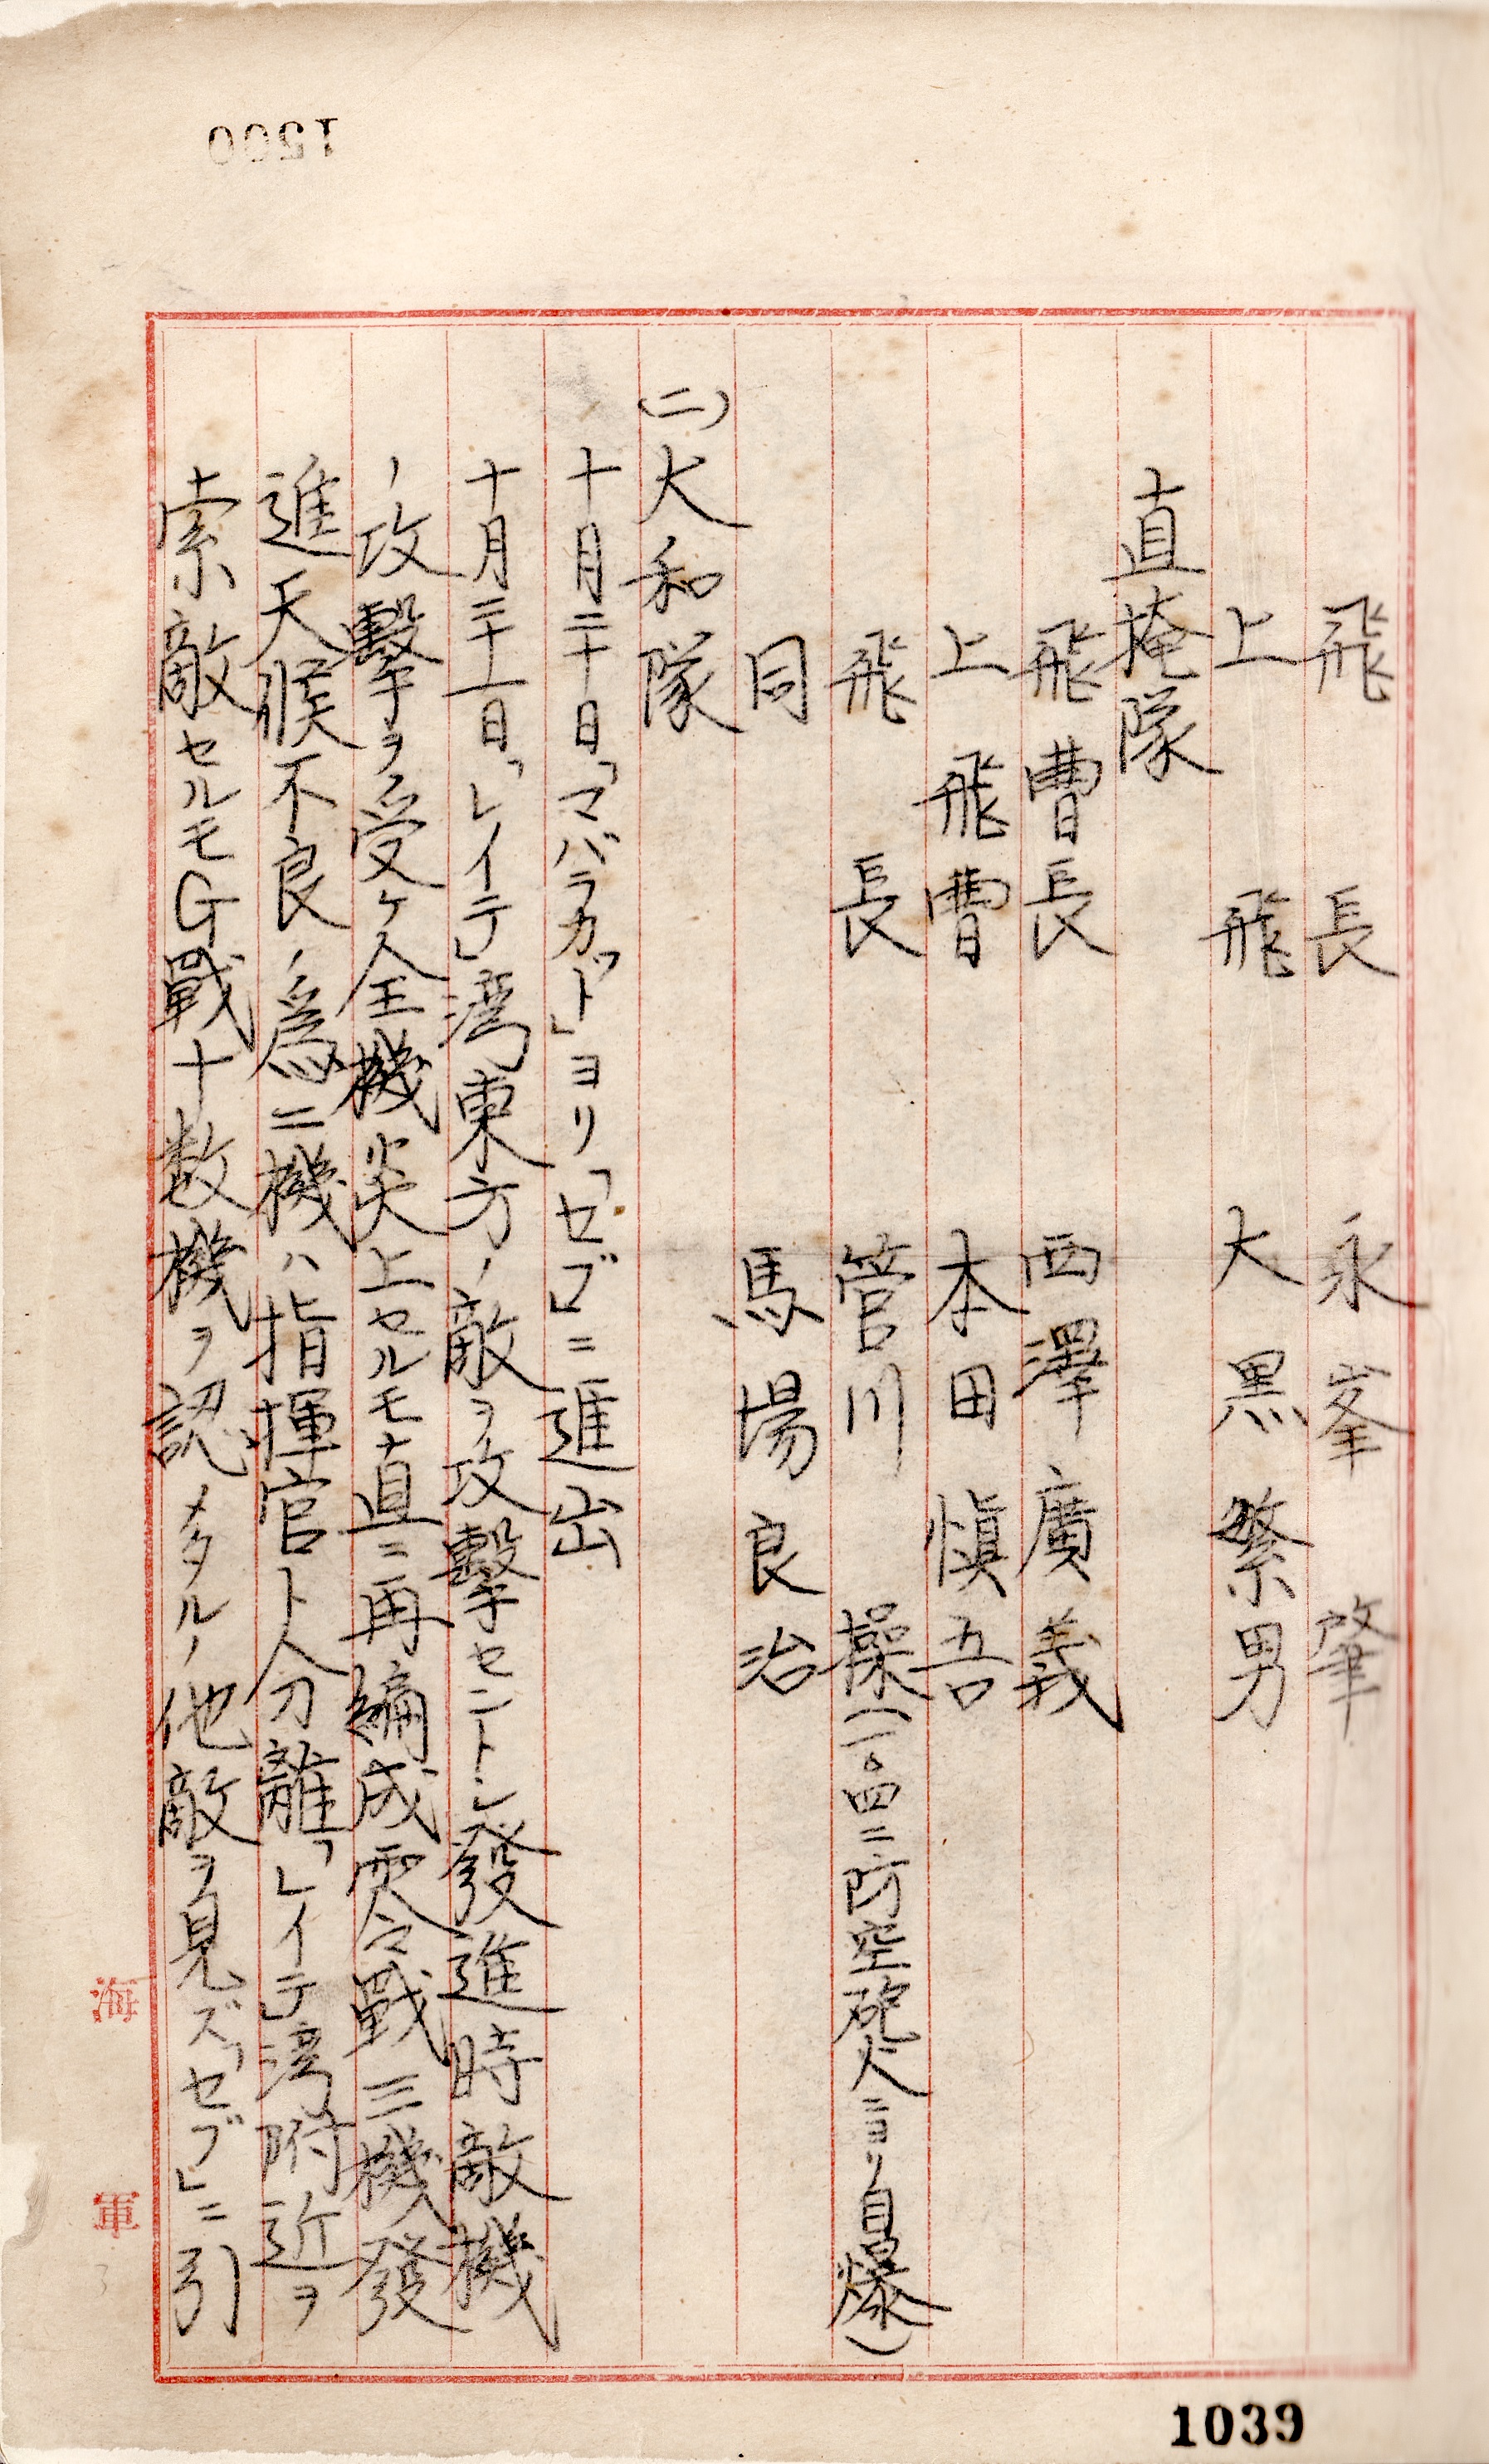 飛長 永峯肇
上飛 大黒繁男
直掩隊
飛曹長 西澤廣義
上飛曹 本田愼吾
飛長 管川操(一〇四二防空砲火ニヨリ自爆)
同 馬場良治
(二)大和隊
十月二十日「マバラカット」ヨリ「セブ」ニ進出
十月二十一日「レイテ」湾東方ノ敵ヲ攻擊セントシ發進時敵機
ノ攻擊ヲ受ケ全機炎上セルモ直ニ再編成零戰三機發
進天候不良ノ爲二機ハ指揮官ト分離「レイテ」湾附近ヲ
索敵セルモG戰十数機ヲ認メタルノ他敵ヲ見ズ「セブ」ニ引
海軍
1500
1039